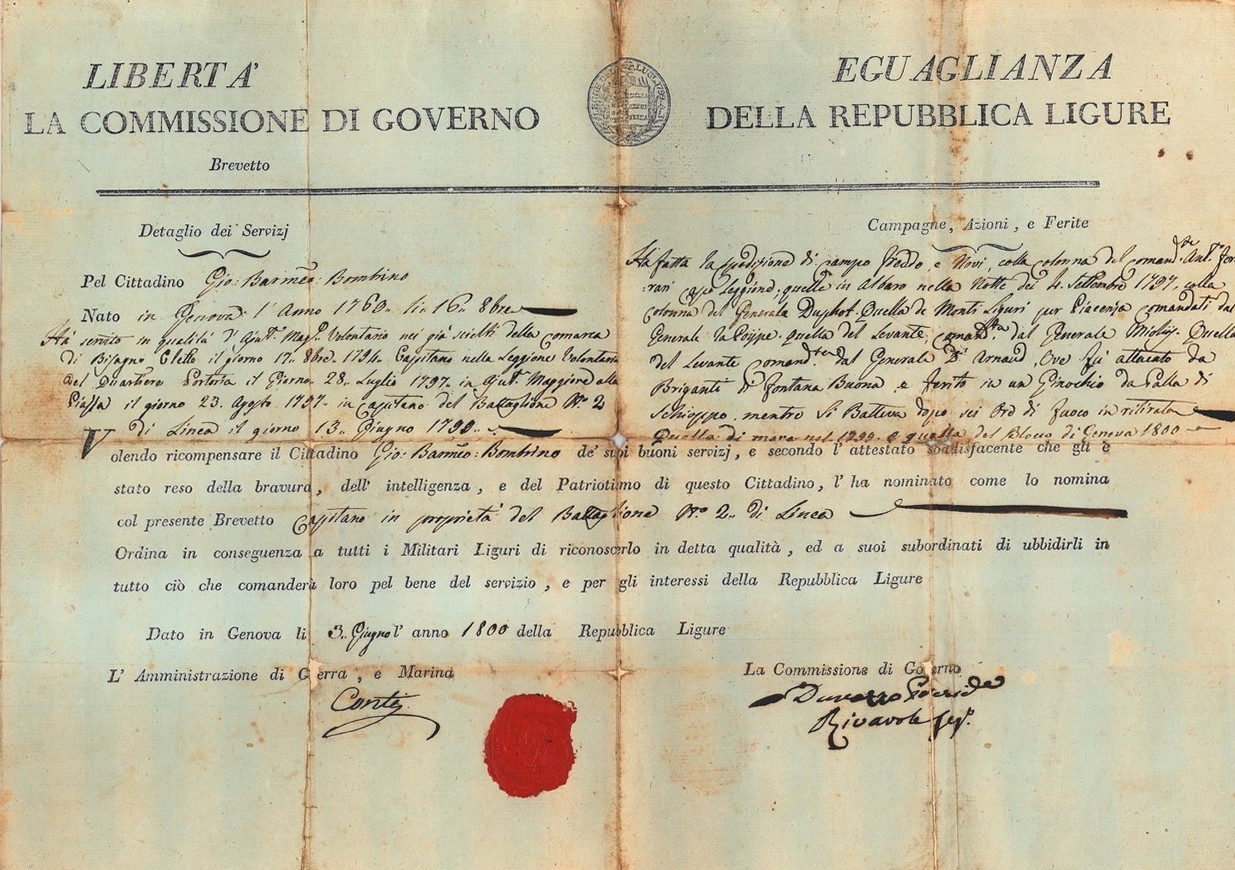 LIBERTA'
EGUAGLIANZA
LA COMMISSIONE DI GOVERNO
DELLA REPUBBLICA LIGURE
Brevetto
Detaglio dei Servizj
Pel Cittadino Gio: Barmeo: Bombino
Nato in Genova l' Anno 1760. li 16 8bre
Ha servito in qualità d' Ajut. Magr. Volontario nei già scielti della comarca
di Bisagno Eletto il giorno 17. 8bre. 1794. Capitano nella Leggione Volontaria
del Quartiere Portoria il Giorno 28. Luglio 1797. in Ajut. Maggiore alla
Piassa il giorno 23. Agosto 1797. in Capitano del Battaglione No. 2
di Linea il giorno 13. Giugno 1799.
Campagne, Azioni, e Ferite
Ha fatta la spedizione di campo Freddo e Novi, colla colonna del comandte. Anto. Fer-
rari capo Leggione, quella in Albaro nella Notte dei 4. Settembre 1797. colla
colonna del Generale Duphot. Quella de Monti Liguri per Piacenza comandati dal
Generale la Poippe. quella del Levante, comanda. dal Generale Miollis. Quella
del Levante comandte. dal Generale D' Arnaud, Ove fù attacato da
Briganti di Fontana Buona e ferito in un Ginochio da Palla di
Schioppo mentre si Batteva dopo sei Ord di fuoco in ritirata
Quella di mare nel 1799. e quella del Blocco di Genova 1800
Volendo ricompensare il Cittadino Gio: Barmeo: Bombino de' suoi buoni servizj, e secondo l' attestato soddisfacente che gli è
stato reso della bravura, dell' intelligenza, e del Patriotimo di questo Cittadino, l' ha nominato come lo nomina
col presente Brevetto Capitano in proprietà del Battaglione No. 2. di Linea
Ordina in conseguenza a tutti i Militari Liguri di riconoscerlo in detta qualità, ed a suoi subordinati di ubbidirli in
tutto ciò che comanderà loro pel bene del servizio, e per gli interessi della Repubblica Ligure
Dato in Genova li 3. Giugno l' anno 1800 della Repubblica Ligure
L' Amministrazione di Guerra, e Marina
La Commissione di Governo